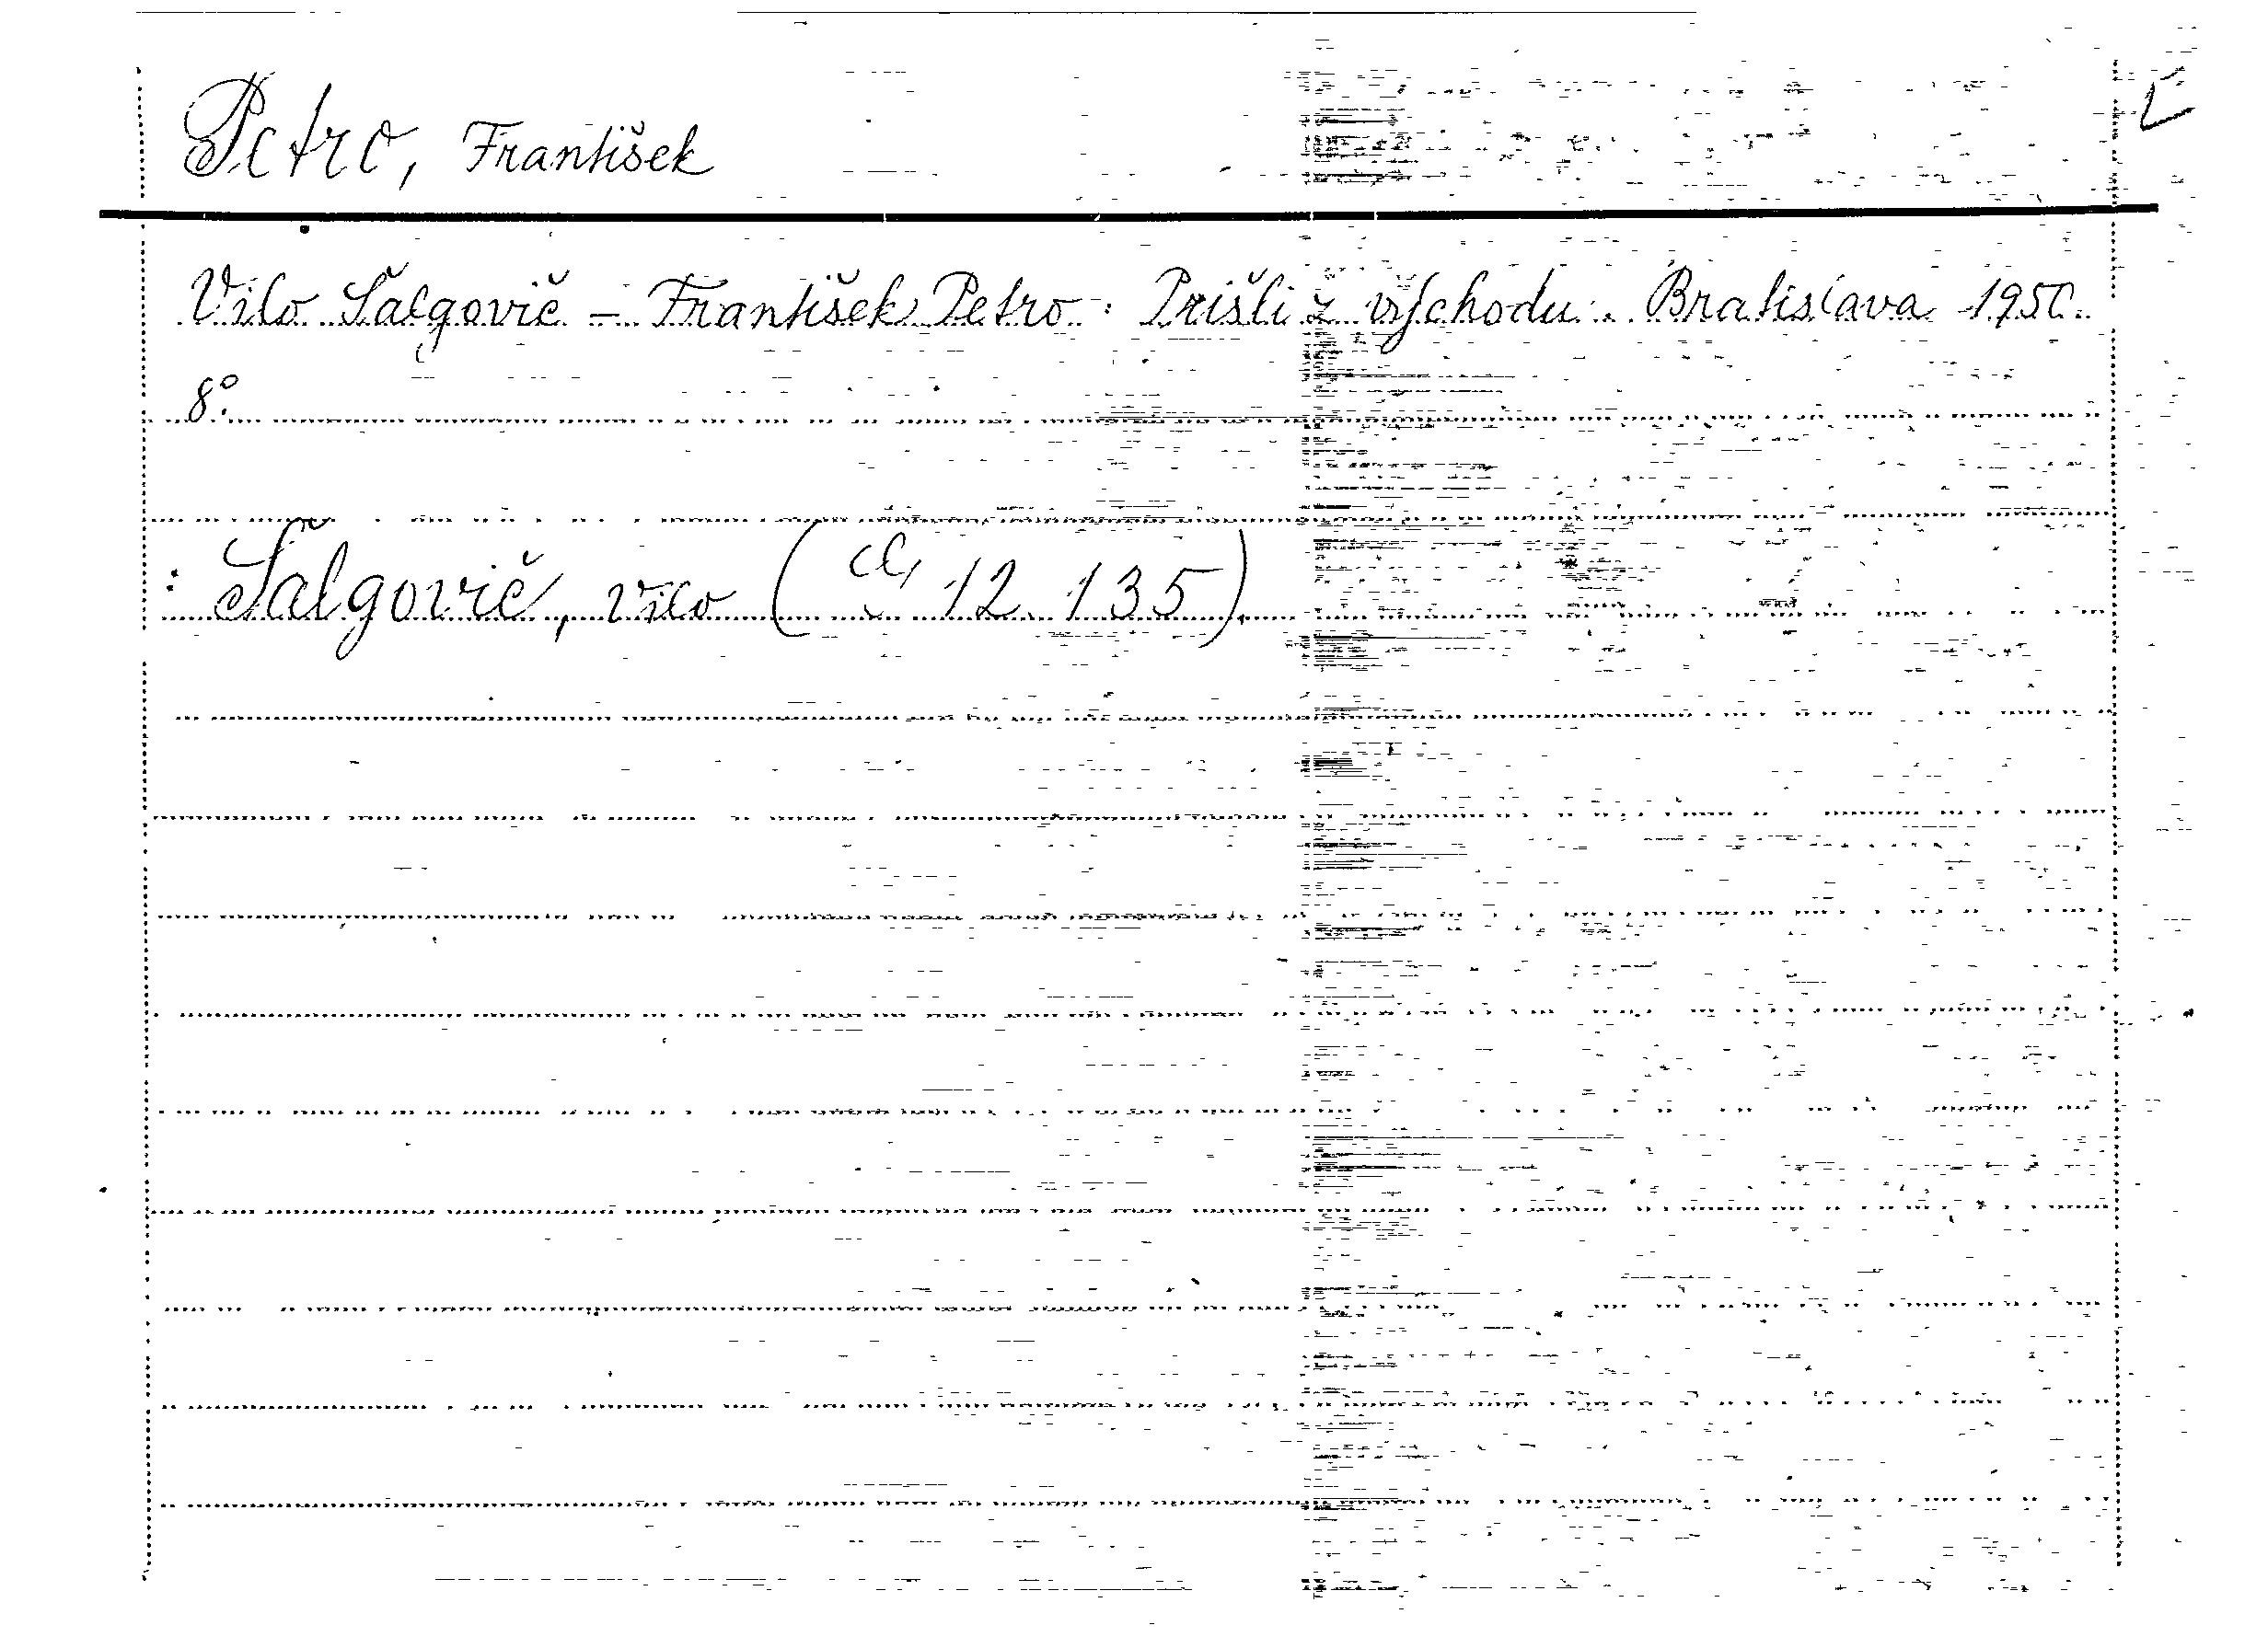 Petro, František
Vilo Šalgovič – František Petro: Prišli z východu. Bratislava 1950.
8°.
: Šalgovič, Vilo (12.135).